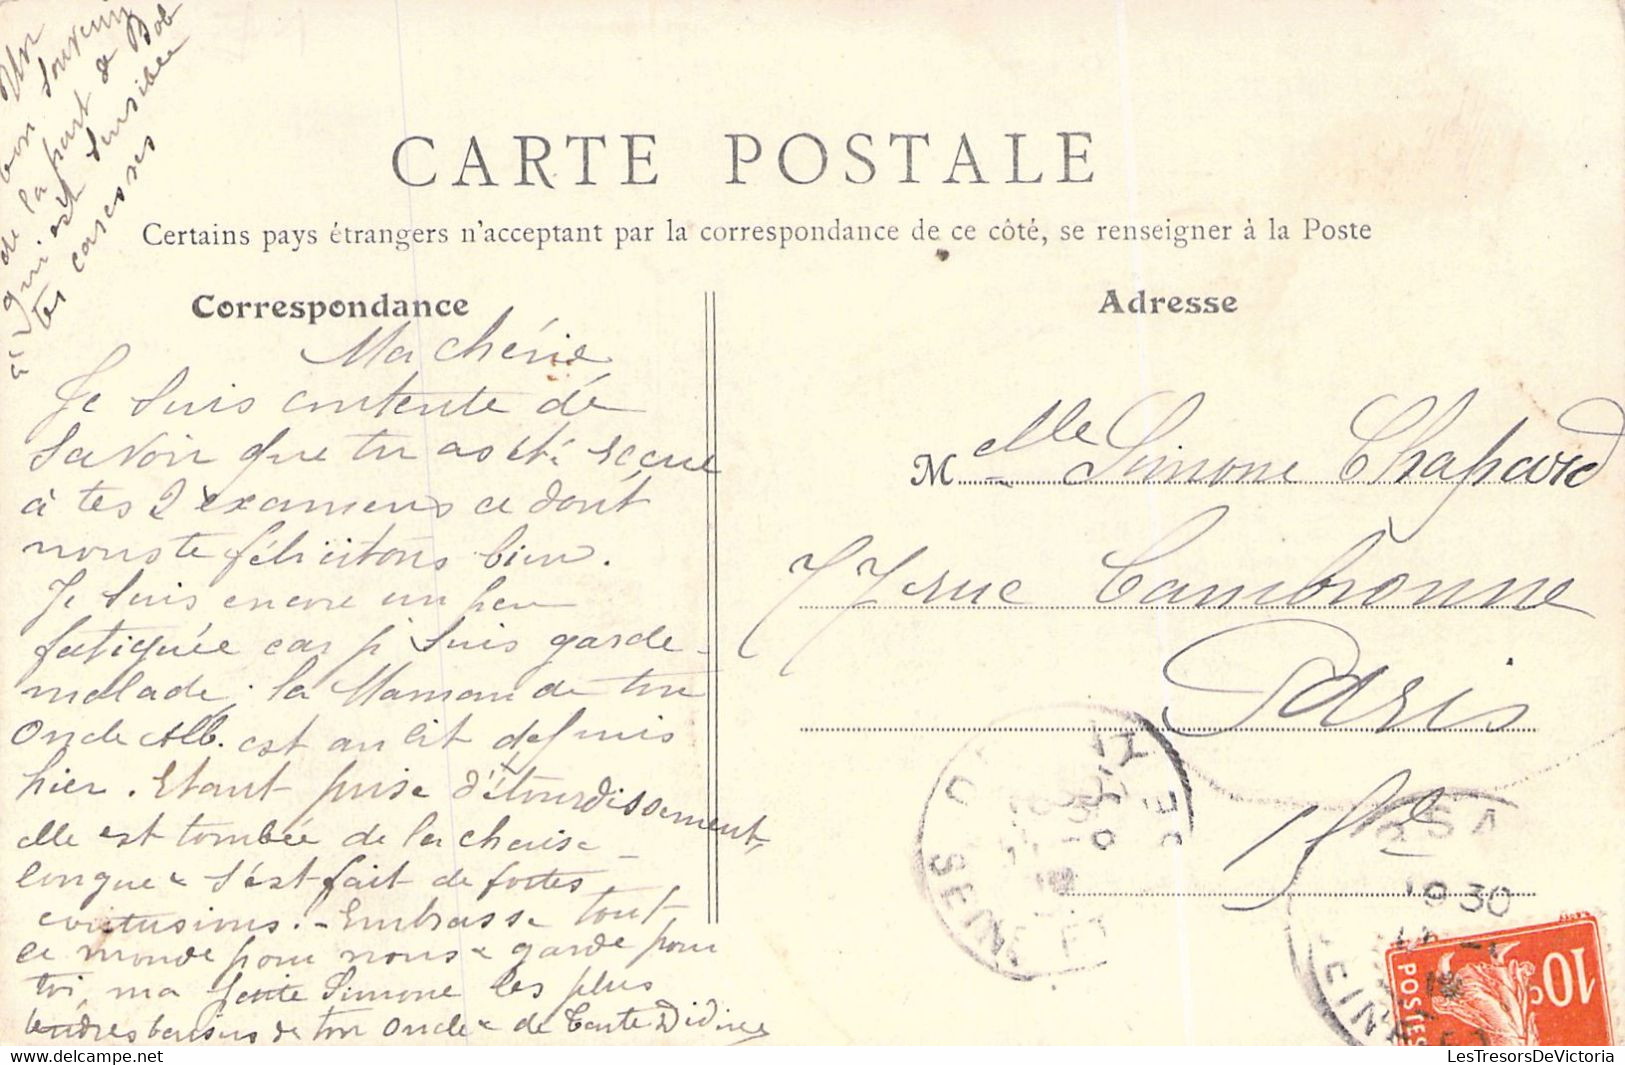 Un
bon souvenir
de la part de Bob
qui est sensible
à tes caresses
CARTE POSTALE
Certains pays étrangers n'acceptant par la correspondance de ce côté, se renseigner à la Poste
Correspondance
Adresse
Ma chérie
Je suis contente de
savoir que tu as été reçue
à tes 2 examens ce dont
nous te félicitons bien.
Je suis encore un peu
fatiguée car je suis garde-
malade; la Maman de ton
Oncle Alb. est au lit depuis
hier. Etant prise d'étourdissement,
elle est tombée de la chaise
longue & s'est fait de fortes
contusions. - Embrasse tout
le monde pour nous & garde pour
toi, ma petite Simone les plus
tendres baisers de ton oncle & de Tante Didine
Melle Simone Chapard
77 rue Cambronne
Paris
SEINE ET
19 30
10c
POSTES
LesTresorsDeVictoria